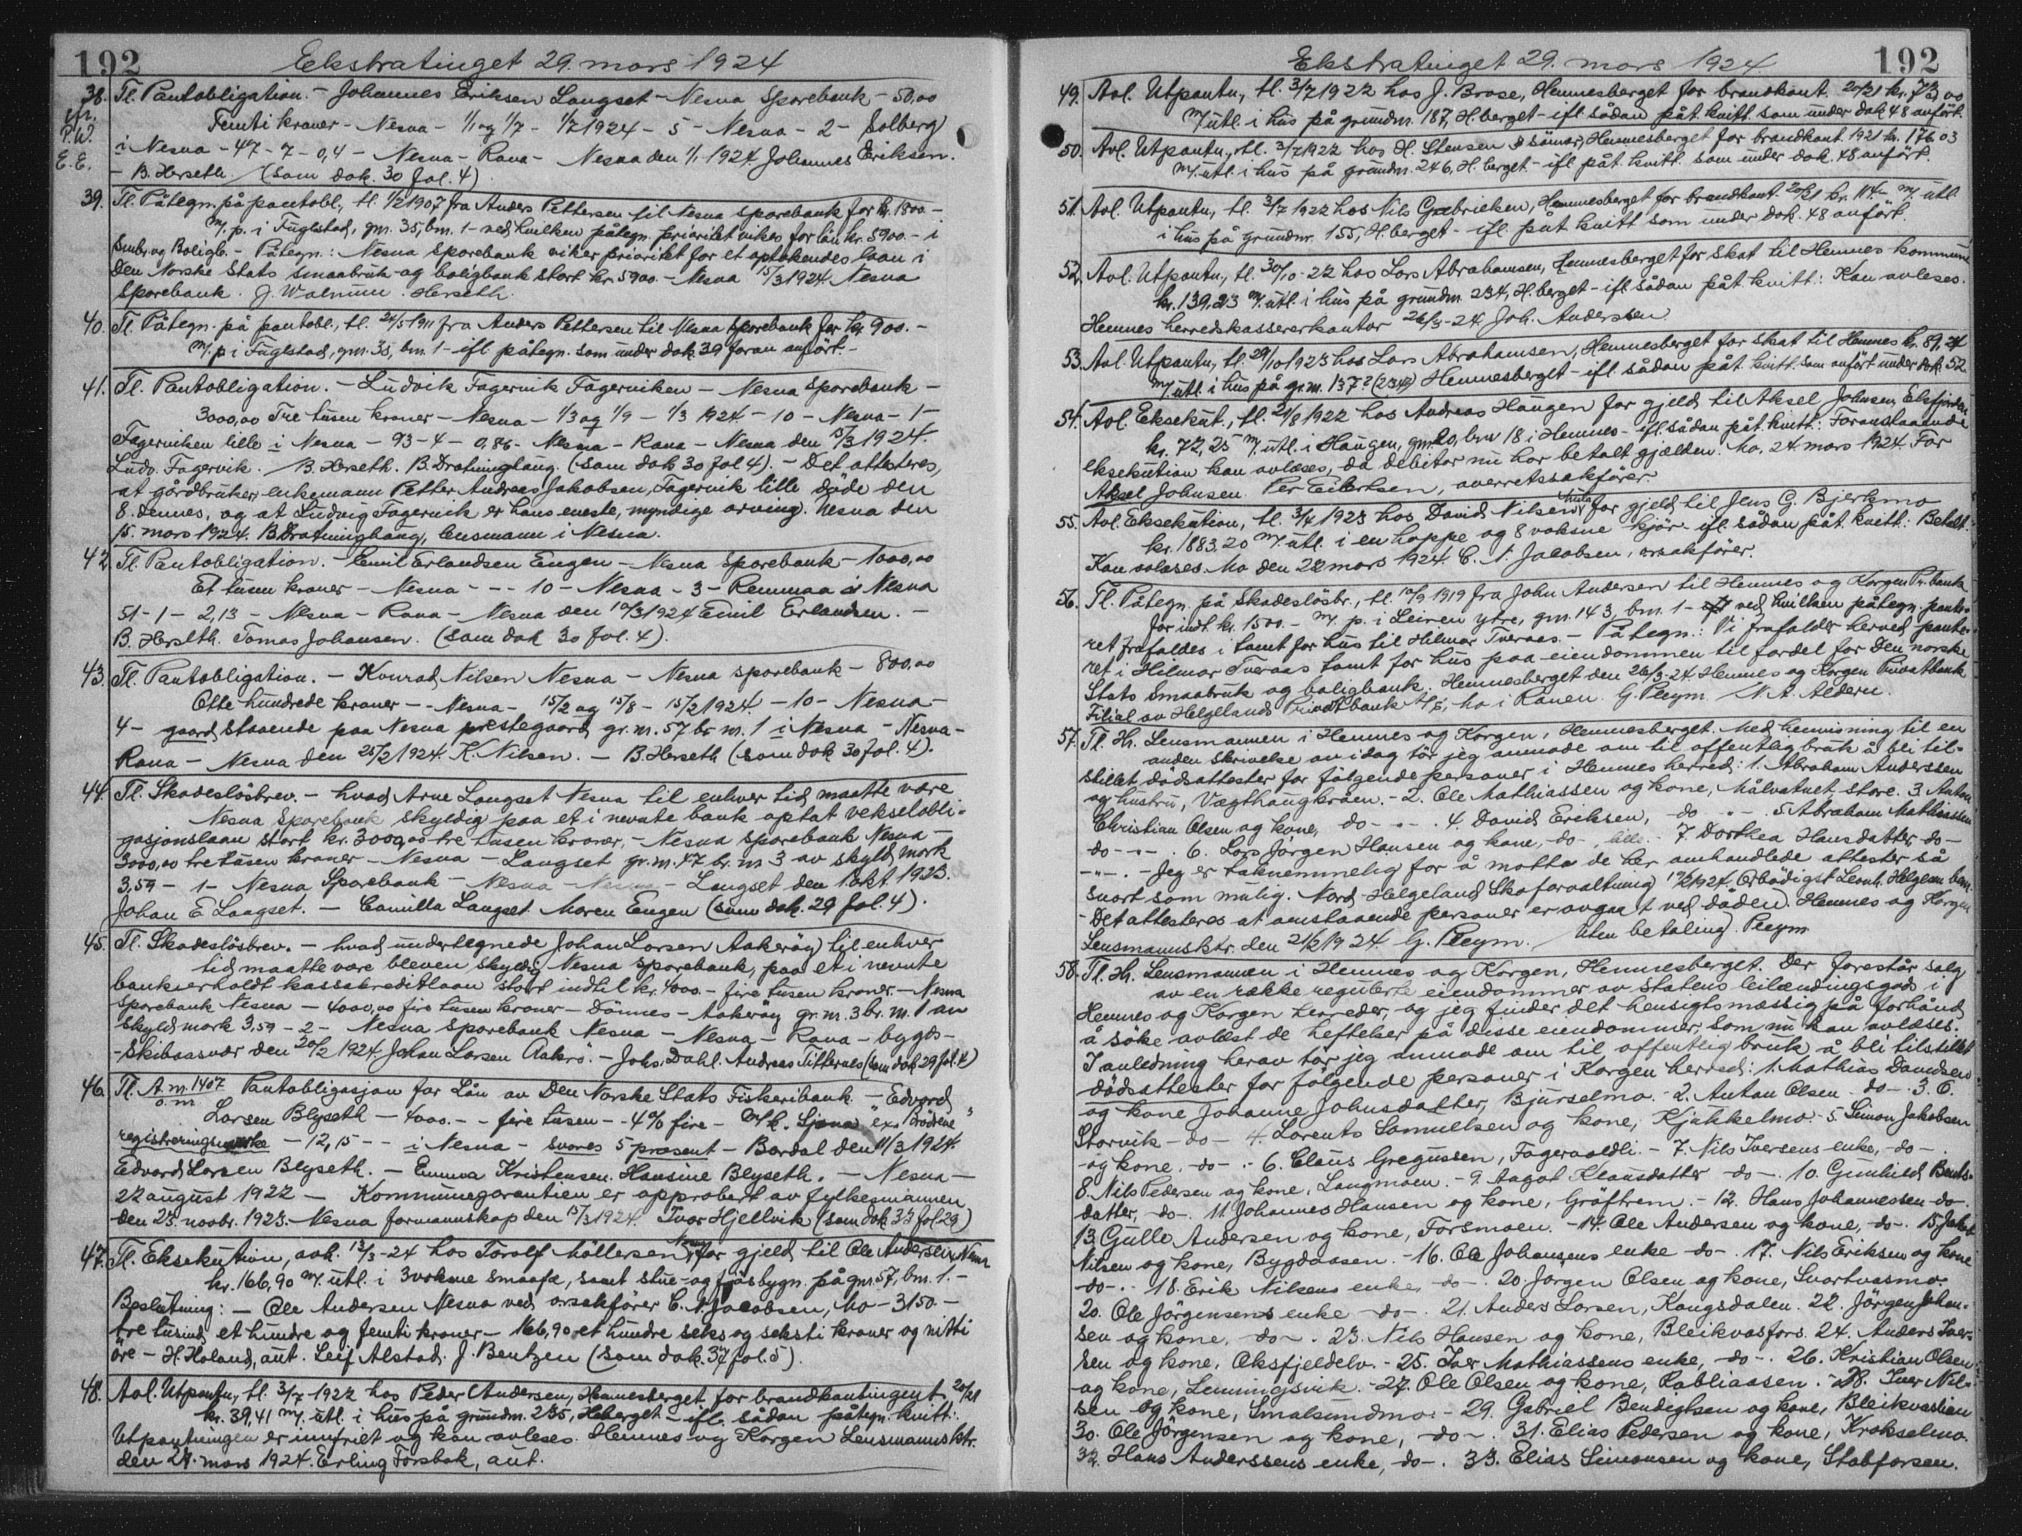 192 Ekstratinget 29. mars 1924
38. Tl. Pantobligation. - Johannes Eriksen Langset - Nesna Sparebank - 50,00
cfr. Femti kroner - Nesna - 1/1 og 1/7 - 1/7 1924 - 5 - Nesna - 2 - Solberg
P.W. i Nesna - 47 - 7 - 0,4 - Nesna - Rana - Nesna den 1/1 1924. Johannes Eriksen.
E.E. - B. Herseth. (som dok. 30 fol. 4)
39. Tl. Påtegn. på pantobl., tl. 1/2 1907 fra Anders Pettersen til Nesna sparebank for kr. 1800. -
m/. p. i Fuglstad, gnr. 35, bnr. 1 - ved hvilken påtegn. prioritet vikes for lån kr. 5900. - i
Smbr. og Boligb. - Påtegn.: Nesna sparebank viker prioritet for et optakendes laan i
Den Norske Stats smaabruk og boligbank stort kr. 5900. - Nesna 15/3 1924. Nesna
sparebank. J. Walnum. Herseth.
40. Tl. Påtegn. på pantobl., tl. 24/5 1911 fra Anders Pettersen til Nesna sparebank for kr. 900. -
m/. p. i Fuglstad, gnr. 35, bnr. 1 - ifl. påtegn. som under dok. 39 foran anført. -
41. Tl. Pantobligation. - Ludvik Fagervik Fagerviken - Nesna sparebank -
3000,00 Tre tusen kroner - Nesna - 1/3 og 1/9 - 1/3 1924 - 10 - Nesna - 1 -
Fagerviken lille i Nesna - 93 - 4 - 0,86 - Nesna - Rana - Nesna den 15/3 1924.
Ludv. Fagervik. B. Herseth. B. Drafninghaug. (som dok 30 fol 4). - Det attesteres,
at gårdbruker enkemann Petter Andreas Jakobsen, Fagervik lille døde den
8. dennes, og at Ludvig Fagervik er hans eneste, myndige arving. Nesna den
15. mars 1924. B. Drafninghaug, lensmann i Nesna.
42. Tl. Pantobligation. - Emil Erlandsen Engen - Nesna sparebank - 1000,00
Et tusen kroner - Nesna - - - 10 - Nesna - 3 - Remmaa i Nesna
51 - 1 - 2,13 - Nesna - Rana - Nesna den 10/3 1924 Emil Erlandsen. -
B. Herseth. Tomas Johansen. (som dok 30 fol. 4).
43. Tl. Pantobligation. - Konrad Nilsen Nesna - Nesna sparebank - 800,00
Otte hundrede kroner - - Nesna - 15/2 og 15/8 - 15/2 1924. - 10 - Nesna -
4 - gaard staaende paa Nesna prestegaard gr. nr. 57 br. nr. 1 i Nesna - Nesna -
Rana - Nesna den 25/2 1924. K. Nilsen. - B. Herseth (som dok 30 fol. 4).
44. Tl. Skadesløsbrev. - hvad Arne Langset Nesna til enhver tid maatte være
Nesna Sparebank skyldig paa et i nevnte bank optat vekselobli-
gasjonslaan stort kr. 3000,00 tre tusen kroner, - Nesna sparebank Nesna -
3000,00 tretusen kroner - Nesna - Langset gr. nr. 47 br. nr. 3 av skyld mark
3,59 - 1 - Nesna Sparebank - Nesna - Langset den 1 okt 1923.
Johan E Langset. - Camilla Langset Maren Engen (som dok. 29 fol. 4).
45. Tl. Skadesløsbrev. - hvad undertegnede Johan Larsen Aakerøy til enhver
tid maatte være bleven skyldig Nesna sparebank, paa et i nevnte
bank erholdt kassakreditlaan stort indtil kr. 4000. - fire tusen kroner. - Nesna
sparebank Nesna - 4000,00 fire tusen kroner - Dønnes - Aakerøy gr. nr. 3 br. nr. 1 av
skyld mark 3,59 - 2 - Nesna sparebank Nesna - Nesna - Rana - bygds -
- Skibaasvær den 20/2 1924. Johan Larsen Aakrø. - Johs. Dahl. Andreas Titternes (som dok 29 fol. 4)
46. Tl. A. m. 1407 Pantobligasjon for Lån av Den Norske Stats Fiskeribank. - Edvard
Larsen Blyseth - 4000. - - fire tusen - - 4% fire - M/k. Sjøna "ex. Brødrene"
registreringsmerke - 12,15 - - i Nesna - svares 5 prosent - Bardal den 11/3 1924.
Edvard Larsen Blyseth. - Emma Kristensen. Hansine Blyseth. - Nesna -
22 august 1922 - Kommunegarantien er approbert av fylkesmannen
den 23. novbr. 1923. - Nesna formannskap den 15/3 1924. Ivar Hjellvik (som dok 33 fol. 29)
47. Tl. Eksekution, avh. 13/3 - 24 hos Torolf Møllersen, Nesna, for gjeld til Ole Andersen Nesna
kr. 166,90 m/. utl. i 3 voksne smaafæ, samt stue- og fjøsbygn. på gnr. 57, bnr. 1. -
Beslutning: - Ole Andersen Nesna ved orsakfører C. N. Jacobsen, Mo - 3150 -
tre tusind et hundre og femti kroner - 166,90 et hundre seks og seksti kroner og nitti
øre - H. Holand, aut. Leif Alstad. J. Bentzen (som dok. 37 fol. 5).
48. Avl. Utpantn., tl. 3/7 1922 hos Peder Andersen, Hemnesberget for brandkontingent 20/21
kr. 39,41 m/. utl. i hus på grundnr. 235, H.berget - ifl. sådan påtegn. kvitt.:
Utpantningen er innfriet og kan avleses. Hemnes og Korgen Lensmannsktr.
den 24. mars 1924. Erling Forsbak, aut.
Ekstratinget 29. mars 1924. 192
49. Avl. Utpantn., tl. 3/7 1922 hos J. Brose, Hemnesberget for brandkont. 20/21 kr. 73,00
m/ utl. i hus på grundnr. 187, H.berget - ifl. sådan påt. kvitt. som under dok 48 anført.
50. Avl. Utpantn., tl. 3/7 1922 hos H. Stensen & sønner, Hemnesberget for brandkont. 1921 kr. 176,03
m/. utl. i hus på grundnr. 246, H.berget - ifl. påt. kvitt. som under dok. 48 anført.
51. Avl. Utpantn., tl. 3/7 1922 hos Nils Gabrielsen, Hemnesberget for brandkont. 20/21 kr. 114. - m/ utl.
i hus på grundnr. 155, H.berget - ifl. påt. kvitt som under dok. 48 anført.
52. Avl. Utpantn., tl. 30/10 - 22 hos Lars Abrahamsen, Hemnesberget for skat til Hemnes kommune
kr. 139,23 m/. utl. i hus på grundnr. 234, H.berget - ifl. sådan påt. kvitt.: Kan avleses.
Hemnes herredskassererkontor 26/3 - 24 Joh. Anderssen
53. Avl. Utpantn., tl. 29/10 1923 hos Lars Abrahamsen, Hemnesberget for skat til Hemnes kr. 89,24
m/ utl. i hus på gr.nr. 137? (234?) Hemnesberget - ifl. sådan påt. kvitt. som anført under dok. 52.
54. Avl. Eksekut., tl. 21/8 1922 hos Andreas Haugen for gjeld til Aksel Johnsen, Elsfjorden
kr. 72,25 m/. utl. i Haugen, gnr. 20, bnr 18 i Hemnes - ifl. sådan påt. kvitt.: Foranstaaende
eksekution kan avlæses, da debitor nu har betalt gjælden. Mo, 24. mars 1924. For
Aksel Johnsen. Per Eilertsen, overretssakfører.
55. Avl. Eksekution, tl. 3/4 1923 hos David Nilsen, for gjeld til Jens G. Bjerkmo
kr. 1883.20 m/. utl. i en hoppe og 8 voksne kjør - ifl. sådan påt. kvitt.: Betalt.
Kan avlæses. Mo den 22 mars 1924. C. N. Jacobsen, orsakfører.
56. Tl. Påtegn. på Skadesløsbr., tl. 10/9 1919 fra John Andersen til Hemnes og Korgen Pr.bank
for indt. kr. 1500. - m/. p. i Leiren ytre, gnr. 143, bnr. 1 - ved hvilken påtegn. pante-
ret frafaldes i tomt for hus til Hilmar Tveraas. - Påtegn.: Vi frafalder herved pante-
ret i Hilmar Tveraas tomt for hus paa eiendommen til fordel for Den norske
Stats Smaabruk og boligbank. Hemnesberget den 26/3-24. Hemnes og Korgen Privatbank
Filial av Helgelands Privatbank A/S, Mo i Ranen. G. Pleym N. A. Aldern.
57. Tl. Hr. Lensmannen i Hemnes og Korgen, Hemnesberget. Med henvisning til en
anden skrivelse av idag tør jeg anmode om til offentlig bruk å bli til-
stillet dødsattester for følgende personer i Hemnes herred: 1. Abraham Anderssen
og hustru, Vægthaugkroen. - 2. Ole Mathiassen og kone, Målvatnet store. 3. Anton
Christian Olsen og kone, do - " - . 4. David Eriksen, do - " - 5. Abraham Mathiassen
do - " - . 6. Lars Jørgen Hansen og kone, do -, lille. 7. Dorthea Hansdatter, do -
- " - . - Jeg er taknemmelig for å motta de her omhandlede attester så
snart som mulig. Nord-Helgeland Skoforvaltning 1924. Ærbødigst Leonh. Helgesen
- Det attesteres at omstaaende personer er avgaat ved døden. Hemnes og Korgen
Lensmannsktr. den 21/2 1924 G. Pleym. Uten betaling Pleym
58. Tl. Hr. Lensmannen i Hemnes og Korgen, Hemnesberget. Der forestår salg
av en række regulerte eiendommer av statens leilændingsgods i
Hemnes og Korgen herreder, og jeg finder det hensigtsmæssig på forhånd
å søke avlæst de heftelser på disse eiendommer, som nu kan avlæses.
I anledning herav tør jeg anmode om til offentlig bruk å bli tilstillet
dødsattester for følgende personer i Korgen herred: 1. Mathias Davidsen
og kone Johanne Johnsdatter, Bjurselmo. - 2. Anton Olsen - do -. 3. E.
Storvik - do - 4. Lorents Samuelsen og kone, Kjukkelmo. 5. Simon Jakobsen
og kone. - do - . - 6. Claus Gregussen, Fagervoldli. - 7. Nils Iversens enke, - do -
8. Nils Pedersen og kone, Langmoen. - 9. Aagot Klausdatter - do -. 10. Gunhild Bents-
datter, - do -. 11. Johannes Hansen og kone, Grøftrem. - 12. Hans Johannessen - do -
13. Gulle Andersen og kone, Forsmoen. - 14. Ole Andersen og kone, - do -. 15. Jakob
Nilsen og kone, Bygdaasen. - 16. Ole Johansens enke - do -. 17. Nils Eriksen og kone
- do - . 18. Erik Nilsens enke, - do - . 20. Jørgen Olsen og kone, Svartvasmo.
20. Ole Jørgensens enke - do - . 21. Anders Larsen, Kongsdalen. 22. Jørgen Johan-
sen og kone, - do - . 23. Nils Hansen og kone, Bleikvasfors. 24. Anders Iver-
sen og kone, Oksfjeldelv. - 25. Iver Mathiassens enke, - do - . 26. Kristian Olsen
og kone, Lenningsvik. - 27. Ole Olsen og kone, Rabliaasen. - 28. Iver Nil-
sen og kone, Smalsundmo. - 29. Gabriel Bendigtsen og kone, Bleikvaslien
30. Ole Jørgensen og kone, - do - . 31. Elias Pedersen og kone, Krokselmo.
32. Hans Anderssens enke, - do - . 33. Elias Simonsen og kone, Stabforsen.